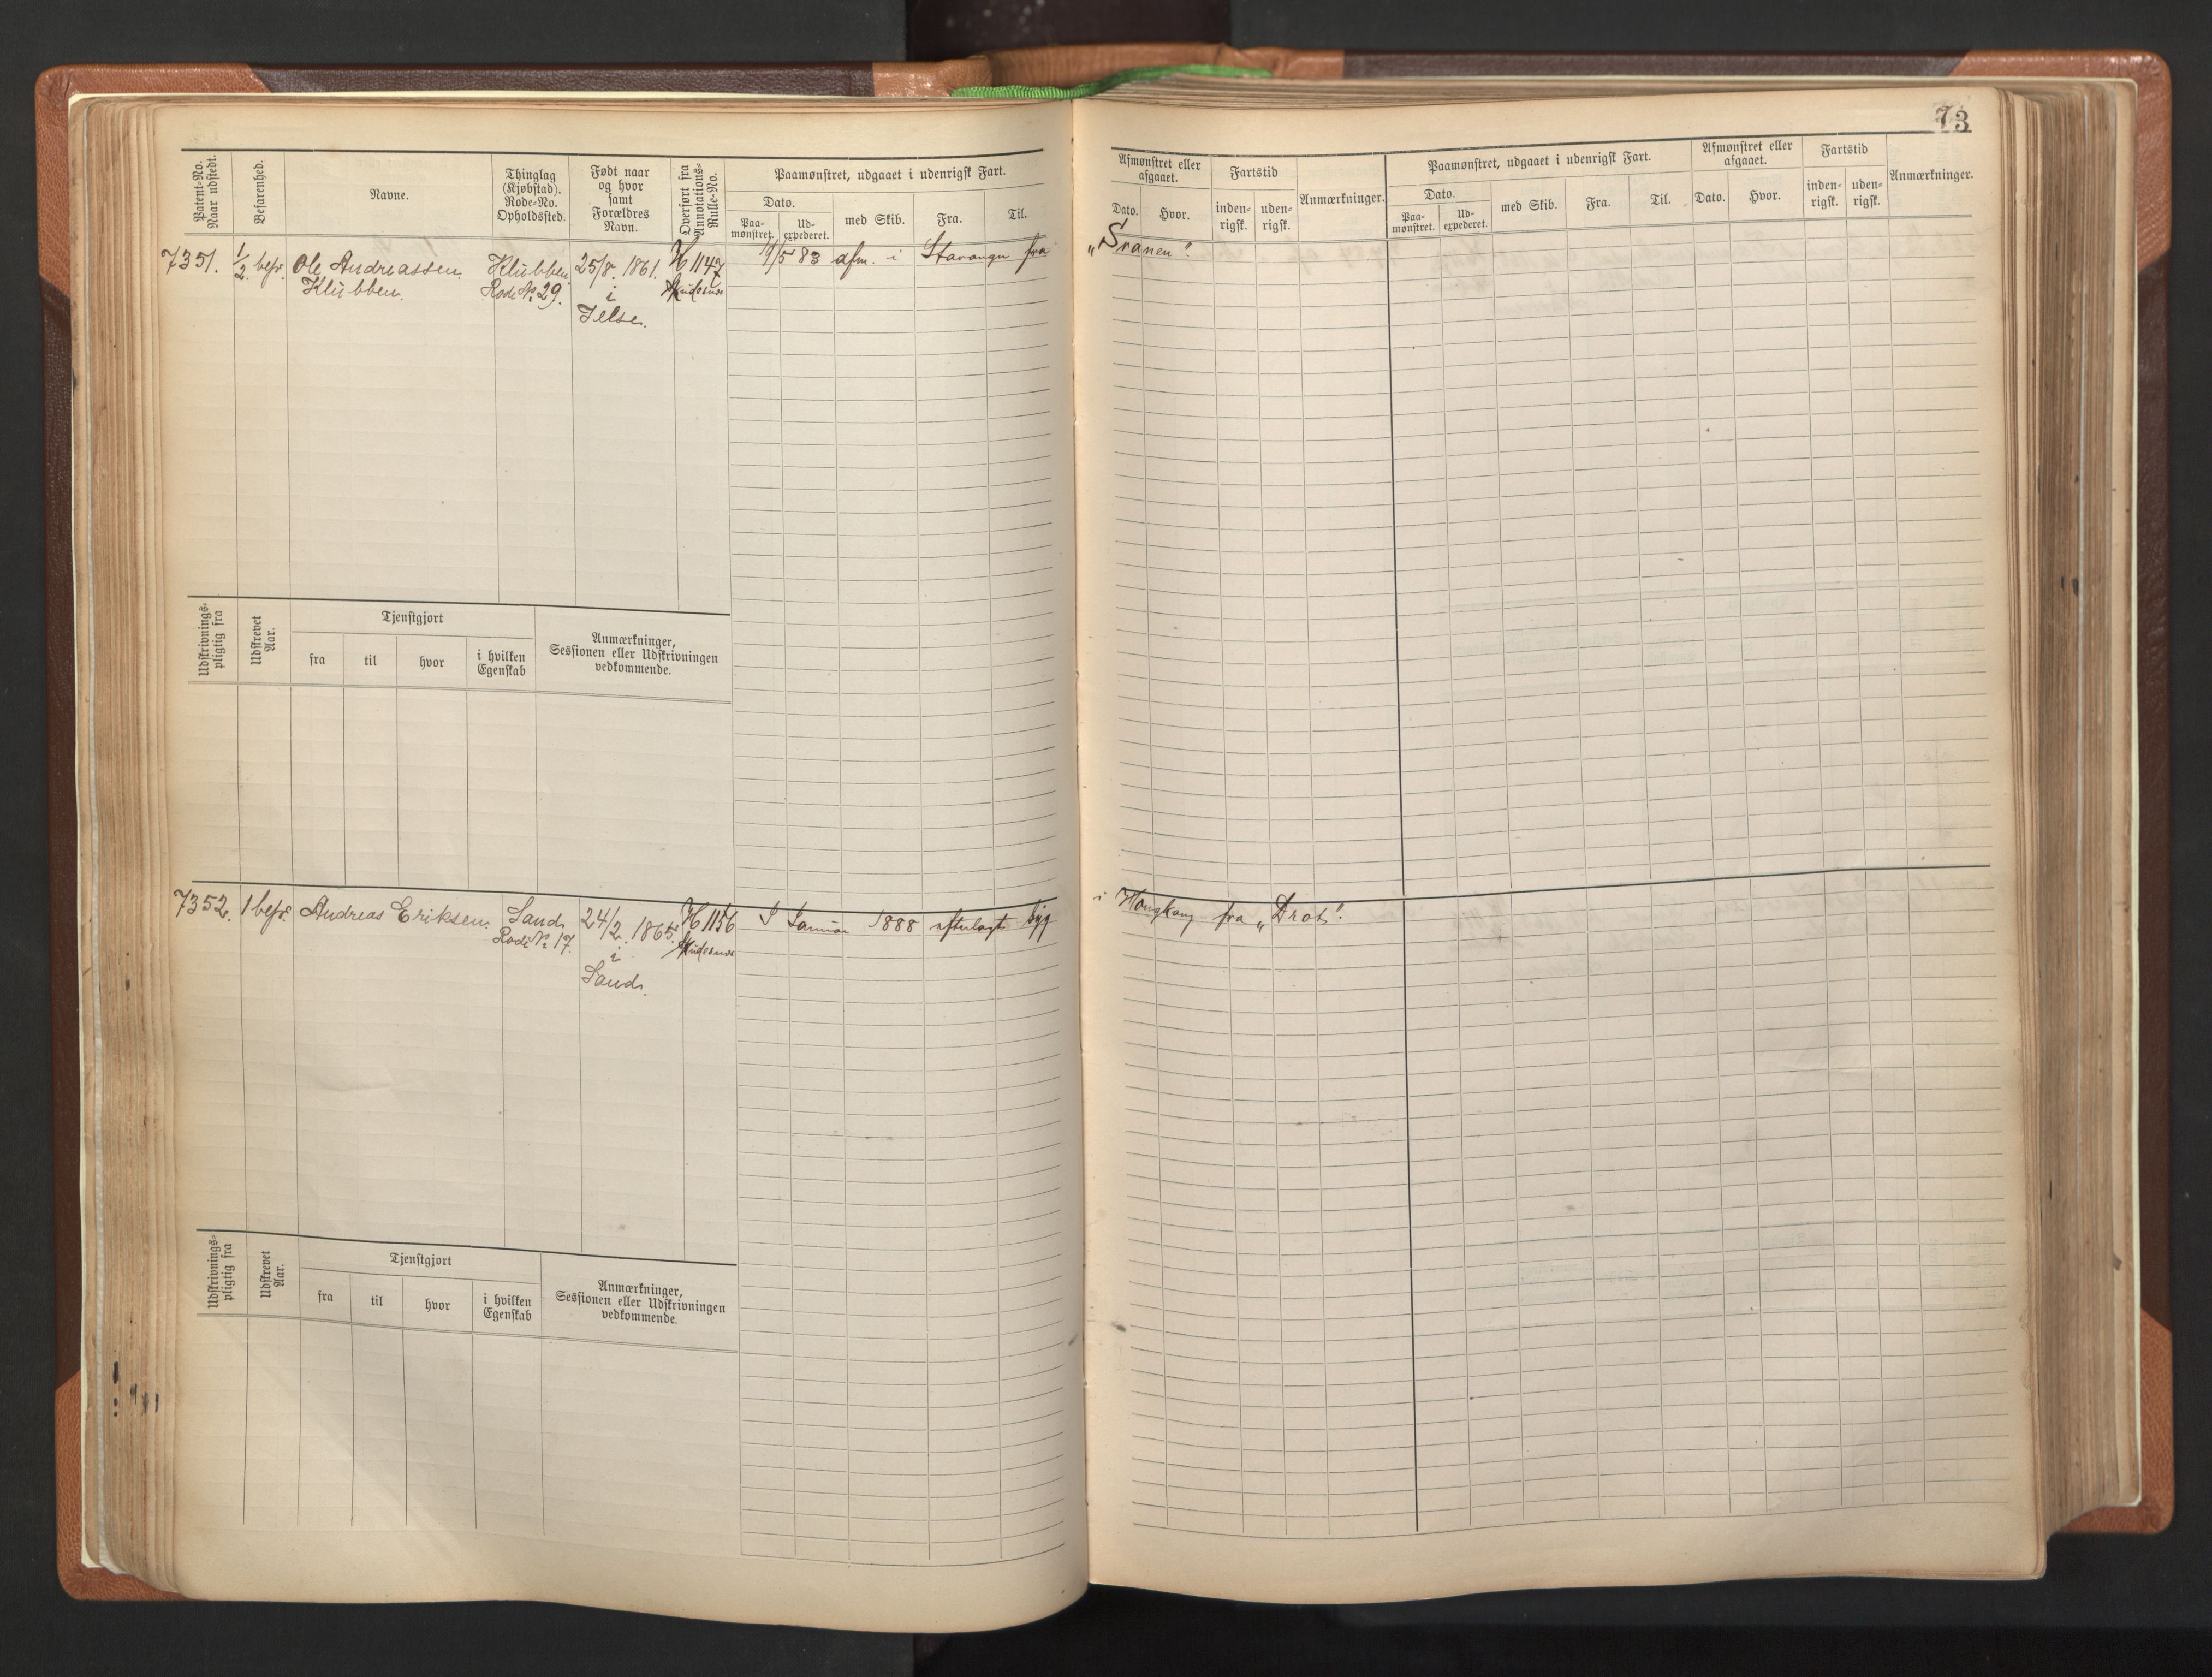 73
Patent-No. Naar udstedt.
Befarenhed.
Navne.
Thinglag (Kjøbstad). Rode-No. Opholdssted.
Født naar og hvor samt Forældres Navn.
Overført fra Annotations-Rulle-No.
Paamønstret, udgaaet i udenrigsk Fart.
Dato.
Paa-mønstret.
Ud-expederet.
med Skib.
Fra.
Til.
Afmønstret eller afgaaet.
Dato.
Hvor.
Fartstid
inden-rigsk.
uden-rigsk.
Anmærkninger.
Paamønstret, udgaaet i udenrigsk Fart.
Dato.
Paa-mønstret.
Ud-expederet.
med Skib.
Fra.
Til.
Afmønstret eller afgaaet.
Dato.
Hvor.
Fartstid
inden-rigsk.
uden-rigsk.
Anmærkninger.
7351. 1/2 befr. Ole Andreassen Klubben. 25/8. 1861. H 1147 afm. i Stavanger fra „Svanen".
Klubben. Rode No 29. i Skudesnes
Jelse.
Udskrivnings-pligtig fra
Udskrevet Aar.
Tjenstgjort
fra
til
hvor
i hvilken Egenskab
Anmærkninger, Sessionen eller Udskrivningen vedkommende.
7352. 1 befr. Andreas Eriksen. Sand 24/2. 1865. H 1156 I Januar 1888 efterlagt syg i Hongkong fra „Drot".
Rode No 17. i Skudesnes
Sand.
Udskrivnings-pligtig fra
Udskrevet Aar.
Tjenstgjort
fra
til
hvor
i hvilken Egenskab
Anmærkninger, Sessionen eller Udskrivningen vedkommende.